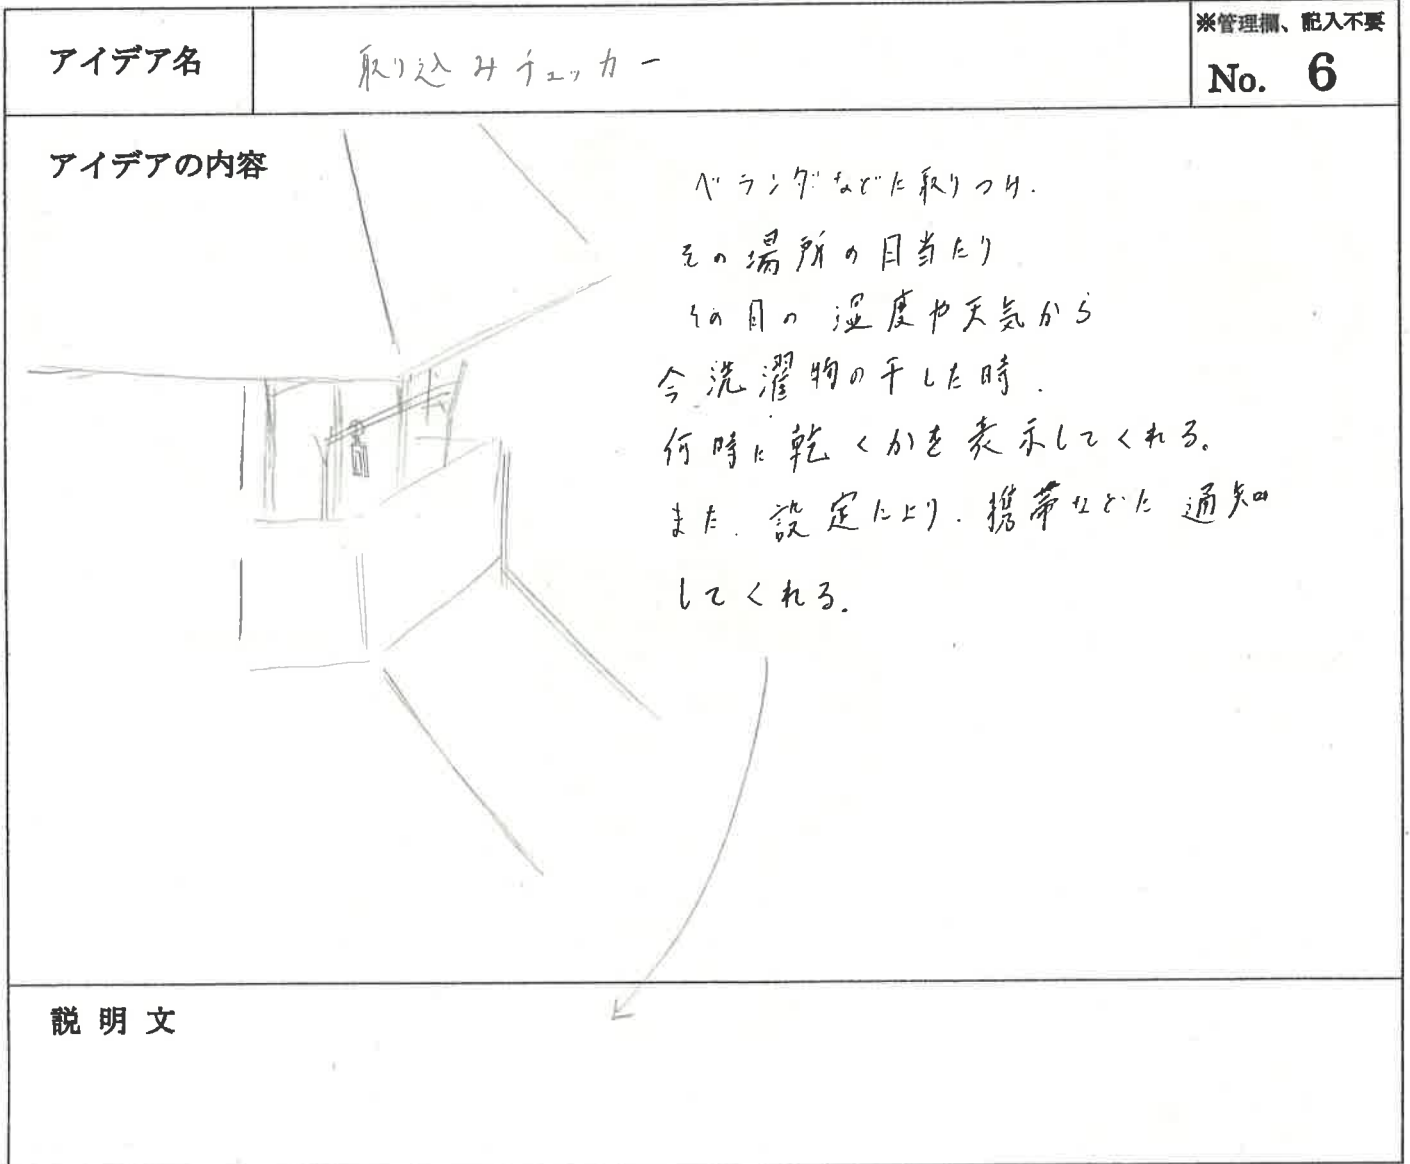 アイデア名
取り込みチェッカー
※管理欄、記入不要
No. 6
アイデアの内容
ベランダなどに取りつけ.
その場所の日当たり
その日の湿度や天気から
今洗濯物の干した時.
何時に乾くかを表示してくれる。
また. 設定により. 携帯などに通知
してくれる.
説明文